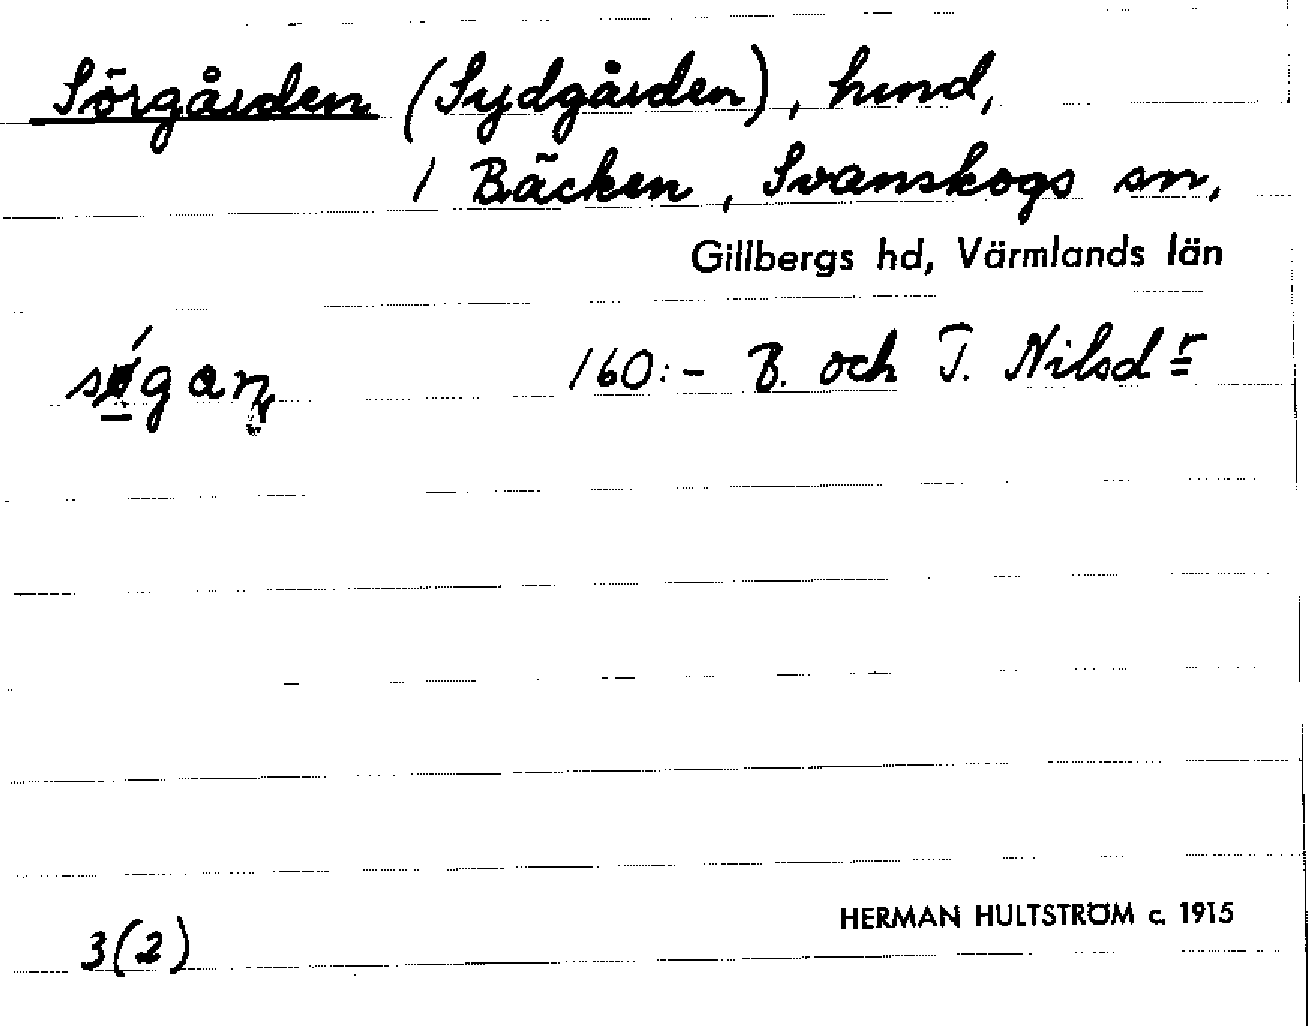 Sörgården (Sydgården), hmd,
1 Bäcken, Svanskogs sn,
Gillbergs hd, Värmlands län
160:- B. och T. Nilsdr
3(2)
HERMAN HULTSTRÖM c. 1915